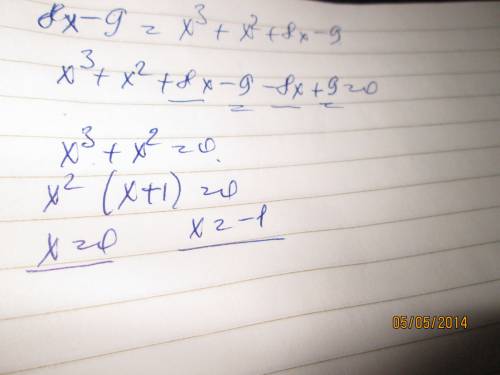 8x-9 = x³ + x² + 8x - 9
x³ + x² + 8x - 9 - 8x + 9 = 0
x³ + x² = 0.
x² (x+1) = 0
x = 0 x = -1
05/05/2014